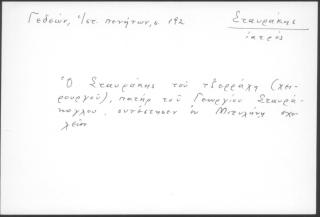 Γεδεών, Ἱστ. πενήτων, σ. 192
Σταυράκης
ἰατρός
Ὁ Σταυράκης τοῦ τζερράχη (χει-
ρουργοῦ), πατήρ τοῦ Γεωργίου Σταυρά-
κογλου, συνέστησεν ἐν Μιτυλήνῃ σχο-
λεῖον